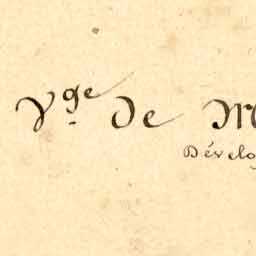 Vge de M
Dévelo